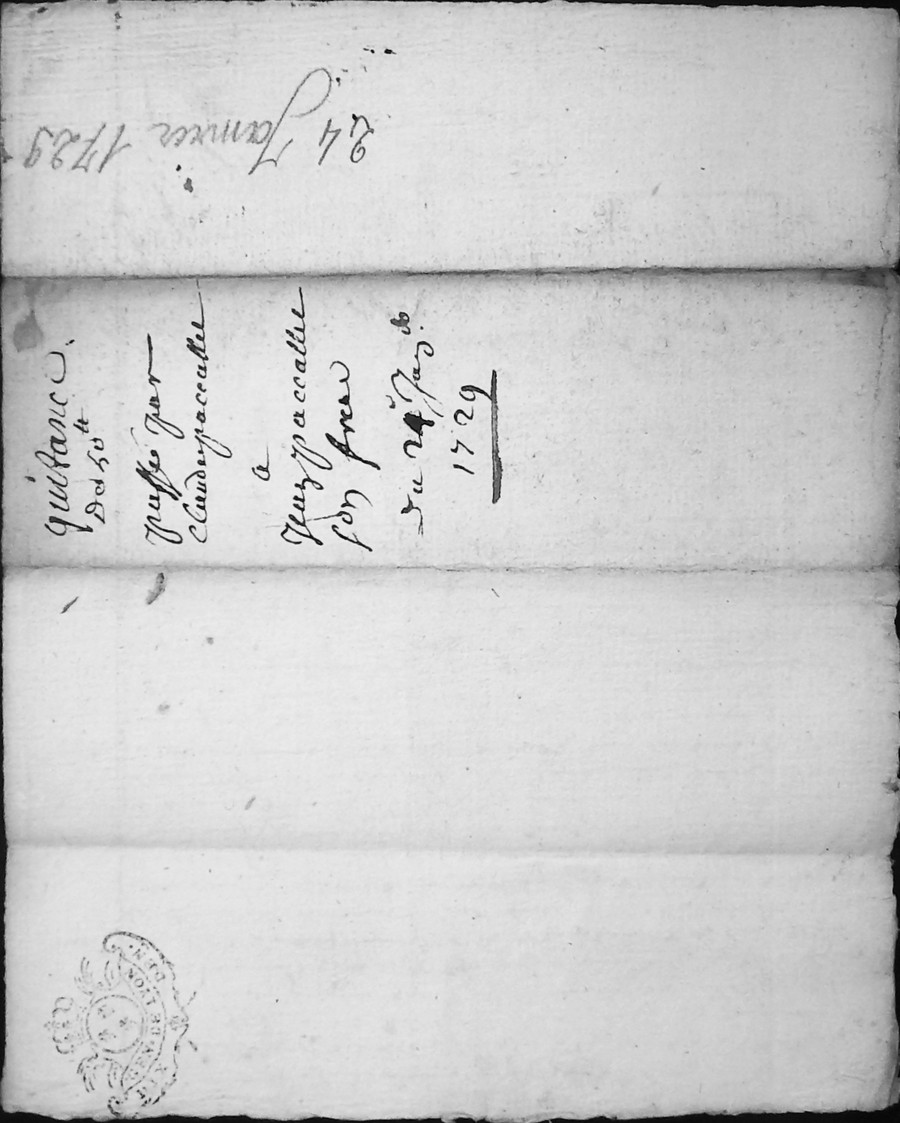 24 Janvier 1729
quittance
De 50 ₶
passé par
Claude paccallet
a
Jean paccallet
son frere
Du 24e Janv
1729
GEN. DE LYON